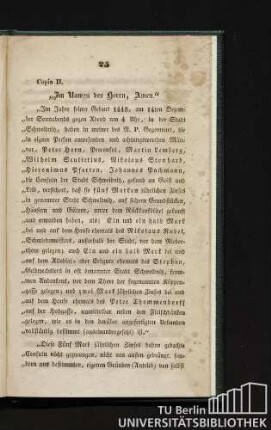 25
Copia II.
„Im Namen des Herrn, Amen."
„Im Jahre seiner Geburt 1448, am 14ten Dezem-
„ber Sonnabends gegen Abend um 4 Uhr, in der Stadt
„Schweidnitz, haben in meiner des N. P. Gegenwart, die
„in eigner Person anwesenden und achtungswerthen Män-
„ner, Peter Horn, Proconsul, Martin Lemberg,
„Wilhelm Scultetius, Nikolaus
„Hieronimus Pfarren, Johannes
„die Consuln der Stadt Schweidnitz, gesund an Geist und
„Leib, versichert, daß sie fünf Marken jährlichen Zinses
„in genannter Stadt Schweidnitz, auf sichern Grundstücken,
„Häusern und Gütern, unter dem Rückkaufstitel gekauft
„und erworben haben, als: Ein und ein halb Mark
„bei und auf dem Hause ehemals des Nikolaus
„Schmiedemeisters, außerhalb der Stadt, vor dem Nieder-
„thore gelegen; auch Ein und ein halb Mark bei und
„auf dem ehemals des Stephan,
in ob genannter Stadt Schweidnitz, from-
„men Andenkens, vor dem Thore der sogenannten Köppen-
„gasse gelegen; und zwei Mark jährlichen Zinses bei und
„auf dem Hause ehemals des Peter Thommendorff
„auf der unmittelbar neben den Fleischbänken
„gelegen, wie es in den darüber angefertigten Urkunden
„vollständig bestimmt ist."
„Diese Fünf Mark jährlichen Zinses haben gedachte
„Consuln nicht gezwungen, nicht von außen gedrängt, son-
„dern aus bestimmten, eignen Gründen (Antrieb) von selbst
TU Berlin
UNIVERSITÄTSBIBLIOTHEK